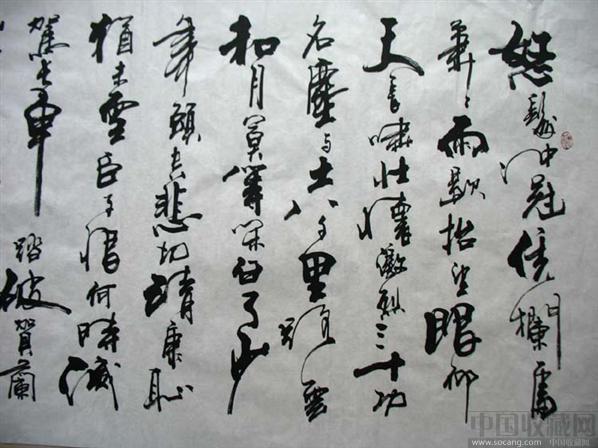 怒髮冲冠凭欄處
蕭々雨歇抬望眼仰
天長嘯壯懷激烈三十功
名塵与土八千里路雲
和月莫等閑白了少
年頭空悲切靖康恥
猶未雪臣子恨何時滅
駕長車踏破賀蘭
中国收藏网
www.socang.com 中国收藏网